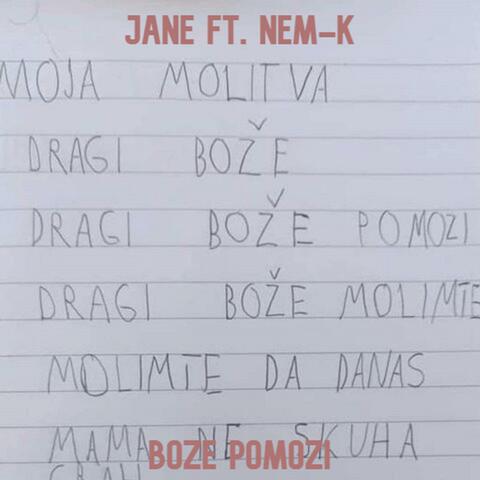 JANE FT. NEM-K
MOJA MOLITVA
DRAGI BOŽE
DRAGI BOŽE POMOZI
DRAGI BOŽE MOLIMTE
MOLIMTE DA DANAS
MAMA NE SKUHA
BOZE POMOZI